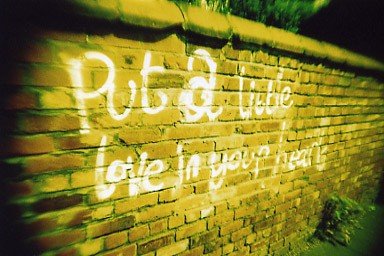 Put a little
love in your heart